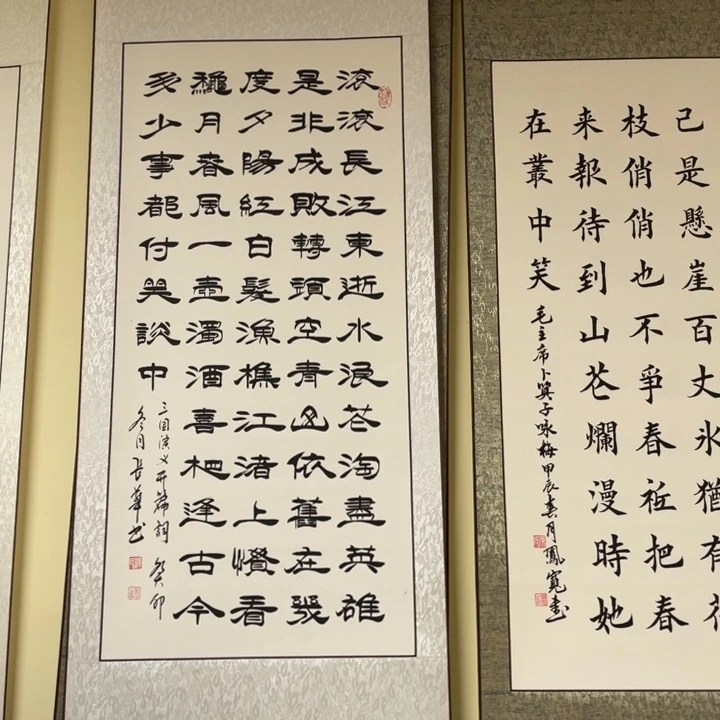 己是懸崖百丈氷猶有花
枝俏俏也不爭春祗把春
来報待到山花爛漫時她
在叢中笑
毛主席卜算子咏梅甲辰春月鳳寬書
滚滚長江東逝水浪花淘盡英雄
是非成敗轉頭空青山依舊在幾
度夕陽紅白髮漁樵江渚上慣看
穐月春風一壺濁酒喜相逢古今
多少事都付笑談中
三国演义开篇詞 癸卯
冬月长華书